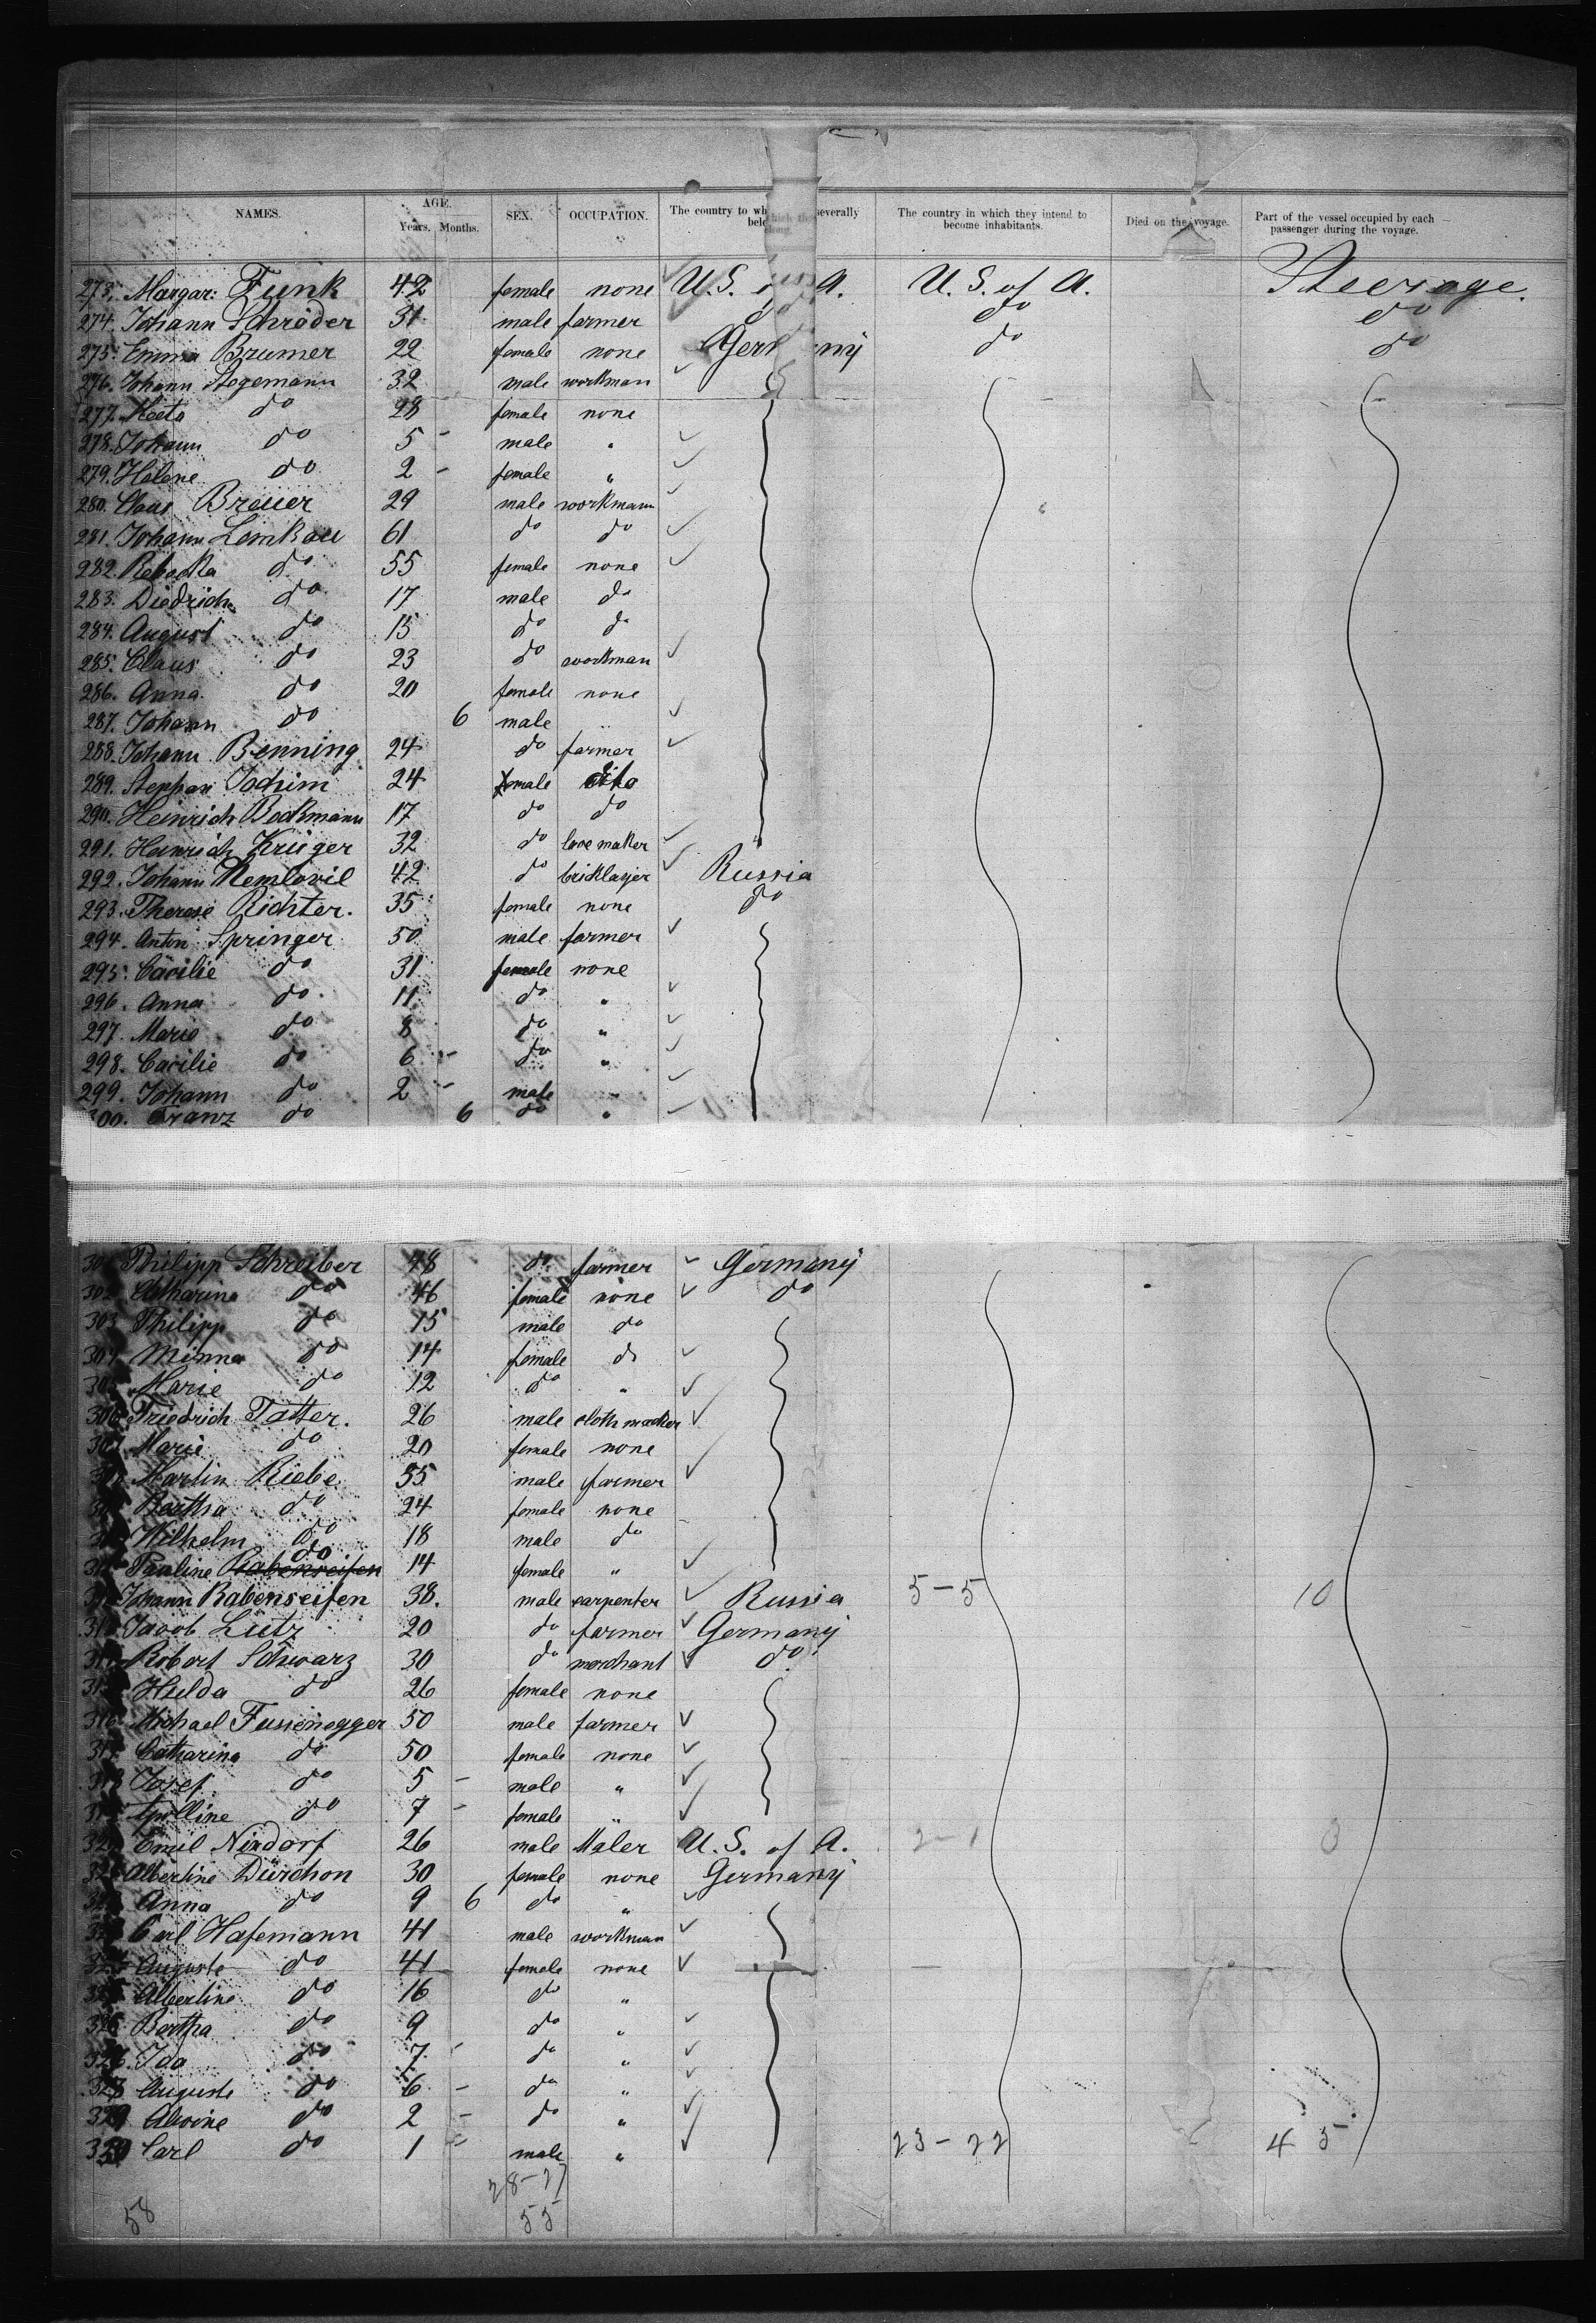 NAMES. AGE. Years. Months. SEX. OCCUPATION. The country to wh severally belo The country in which they intend to become inhabitants. Died on the voyage. Part of the vessel occupied by each passenger during the voyage.
273. Margar: Funk 42 female none U.S. A. U.S. of A. Steerage.
274. Johann Schröder 31 male farmer do do do
275. Emma Brumer 22 female none Ger ny do do
276. Johann Stegemann 32 male workman
277. Meta do 28 female none
278. Johann do 5 - male "
279. Helene do 2 - female "
280. Claus Breuer 29 male workmann
281. Johann Lemkau 61 do do
282. Rebecka do 55 female none
283. Diedrich do 17 male do
284. August do 15 do do
285. Claus do 23 do workman
286. Anna do 20 female none
287. Johann do 6 male "
288. Johann Benning 24 do farmer
289. Stephan Jochim 24 male dito
290. Heinrich Bockmann 17 do do
291. Heinrich Krüger 32 do maker
292. Johann 42 do bricklayer Russia
293. Therese Richter. 35 female none do
294. Anton Springer 50 male farmer
295. Cäcilie do 31 female none
296. Anna do 11 do "
297. Marie do 8 do "
298. Cacilie do 6 - do "
299. Johann do 2 - male "
300. Franz do 6 do "
301 Philipp Schreiber 48 do farmer Germany
302 Catharina do 46 female none do
303 Philipp do 15 male do
304 Minna do 14 female do
305 Marie do 12 do "
306 Friedrich Tatter. 26 male cloth macker
307 Marie do 20 female none
308 Martin Riebe 55 male farmer
309 Bertha do 24 female none
310 Wilhelm do 18 male do
311 Pauline Rabenseifen do 14 female "
312 Johann Rabenseifen 38. male carpenter Russia 5-5 10
313 Jacob Lutz 20 do farmer Germany
314 Robert Schwarz 30 do merchant do
315 Hulda do 26 female none
316 Michael Fussenegger 50 male farmer
317 Catharina do 50 female none
318 Josef do 5 - male "
319 Apolline do 7 - female "
320 Emil Nixdorf 26 male Maler U.S. of A. 2-1
321 Albertine Dürchon 30 female none Germany
322 Anna do 9 6 do "
323 Carl Hafemann 41 male workman
324 Auguste do 41 female none
325 Albertine do 16 do "
326 Bertha do 9 do "
327. Ida do 7 do "
328 Auguste do 6 - do "
329 Alwine do 2 - do "
330 Carl do 1 - male " 23-22 45
28-27
58 55